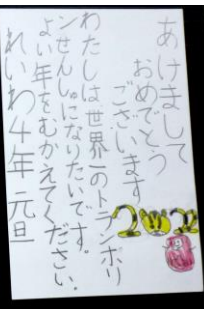 あけまして
おめでとう
ございます
わたしは世界一のトランポリ
ンせんしゅになりたいです。
よい年をむかえてください。
れいわ4年 元旦
2022